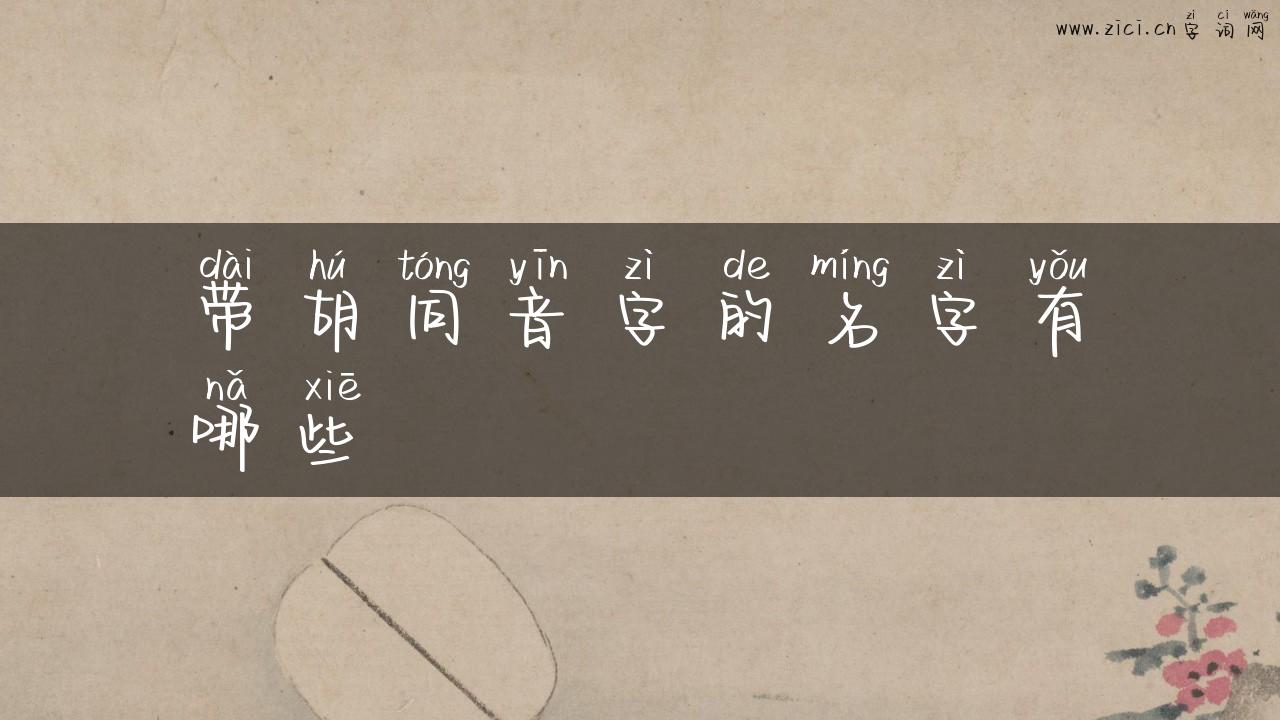 zì cí wǎng
www.zici.cn 字词网
dài hú tóng yīn zì de míng zì yǒu
带胡同音字的名字有
nǎ xiē
哪些